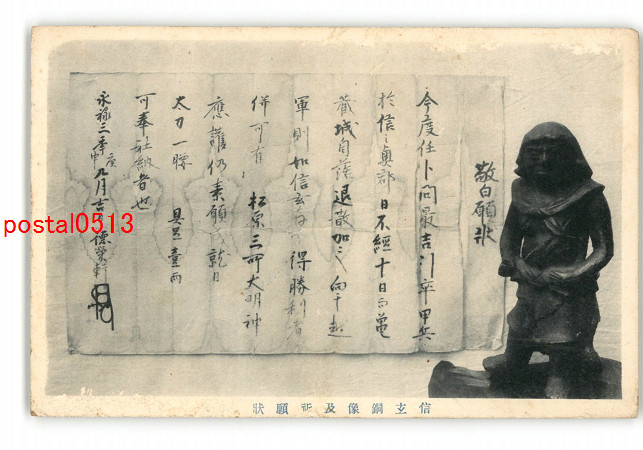 敬白願状
今度任卜問最吉引率甲兵
於信奥郡日不經十日而亀
蔵城自落退散加之向于越
軍則如信玄存分得勝利者
併可有松原三所大明神
應護仍素願成就日
太刀一腰 具足壹両
可奉社納者也
永禄三年庚申九月吉日 徳榮軒
信玄銅像及祈願状
postal0513